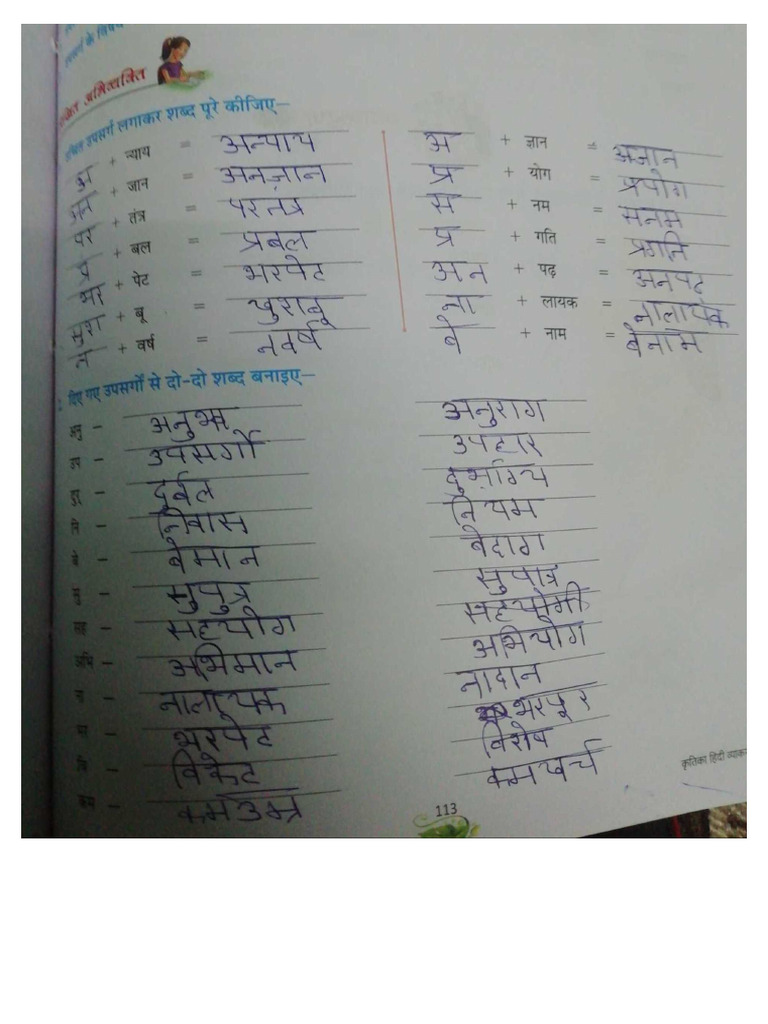 उपसर्ग के विषय
अभिव्यक्ति
उपसर्ग लगाकर शब्द पूरे कीजिए–
अ + न्याय = अन्याय
अन + जान = अनजान
पर + तंत्र = परतंत्र
प्र + बल = प्रबल
भर + पेट = भरपेट
खुश + बू = खुशबू
न + वर्ष = नवर्ष
अ + ज्ञान = अज्ञान
प्र + योग = प्रयोग
म + नम = मनम
प्र + गति = प्रगति
अन + पढ़ = अनपढ़
ना + लायक = नालायक
बे + नाम = बेनाम
दिए गए उपसर्गों से दो-दो शब्द बनाइए–
अनु – अनुभव अनुराग
उप – उपसर्गो उपहार
दुर् – दुर्बल दुर्भाग्य
नि – निवास नियम
बे – बेमान बेदाग
सु – सुपुत्र सुपात्र
सह – सहयोग सहयोगी
अभि – अभिमान अभियोग
ना – नालायक नादान
भर – भरपेट भरपूर
वि – विकेट विशेष
कम – कमउम्र कमखर्च
कृतिका हिंदी व्याकर
113